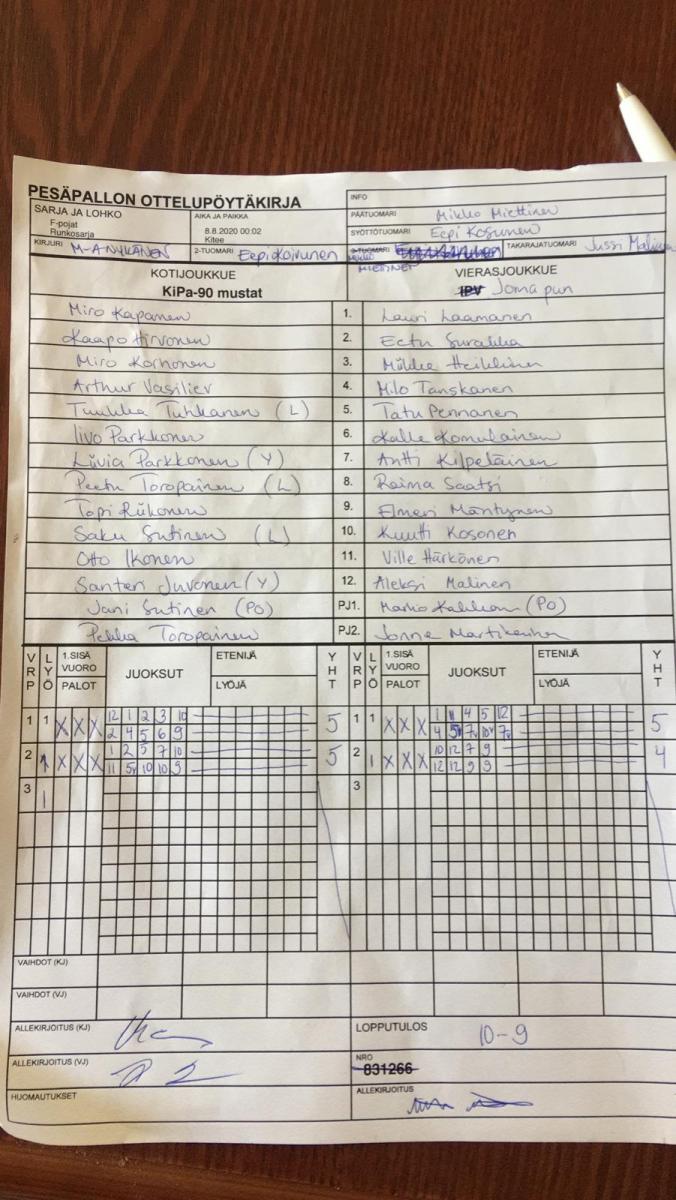 PESÄPALLON OTTELUPÖYTÄKIRJA
INFO
SARJA JA LOHKO
F-pojat
Runkosarja
AIKA JA PAIKKA
8.8.2020 00:02
Kitee
PÄÄTUOMARI Mikko Miettinen
SYÖTTÖTUOMARI Eepi Kosunen
KIRJURI M-A NYKÄNEN
2-TUOMARI Eepi Koivunen
MIETINEN
TAKARAJATUOMARI Jussi
KOTIJOUKKUE
KiPa-90 mustat
VIERASJOUKKUE
IPV Joma pun
Miro Kapanen 1. Lauri Laamanen
Kaapo Hirvonen 2. Eetu Surakka
Miro Korhonen 3. Miikka Heikkinen
Arthur Vasiliev 4. Milo Tanskanen
Tuukka Tuhkanen (L) 5. Tatu Pennanen
Iivo Parkkonen 6. Kalle Komulainen
Liivia Parkkonen (Y) 7. Antti Kilpeläinen
Peetu Toropainen (L) 8. Raima Saatsi
Topi Riikonen 9. Elmeri Mäntynen
Saku Sutinen (L) 10. Kuutti Kosonen
Otto Ikonen 11. Ville Härkönen
Santeri Juvonen (Y) 12. Aleksi Malinen
Jani Sutinen (PO) PJ1. Marko (PO)
Pekka Toropainen PJ2. Jonne Martikainen
VRP LYÖ 1.SISÄ VUORO PALOT JUOKSUT ETENIJÄ LYÖJÄ YHT VRP LYÖ 1.SISÄ VUORO PALOT JUOKSUT ETENIJÄ LYÖJÄ YHT
1 1 X X X 12 1 2 3 10 5 1 1 X X X 1 11 4 5 12 5
2 4 5 6 9 4 5v 7v 10v 7v
2 1 X X X 1 2 5 7 10 5 2 1 X X X 10 12 7 9 4
11 5v 10 10 9 12 12 9 9
3 1 3
VAIHDOT (KJ)
VAIHDOT (VJ)
ALLEKIRJOITUS (KJ)
LOPPUTULOS 10-9
ALLEKIRJOITUS (VJ)
NRO
831266
HUOMAUTUKSET
ALLEKIRJOITUS